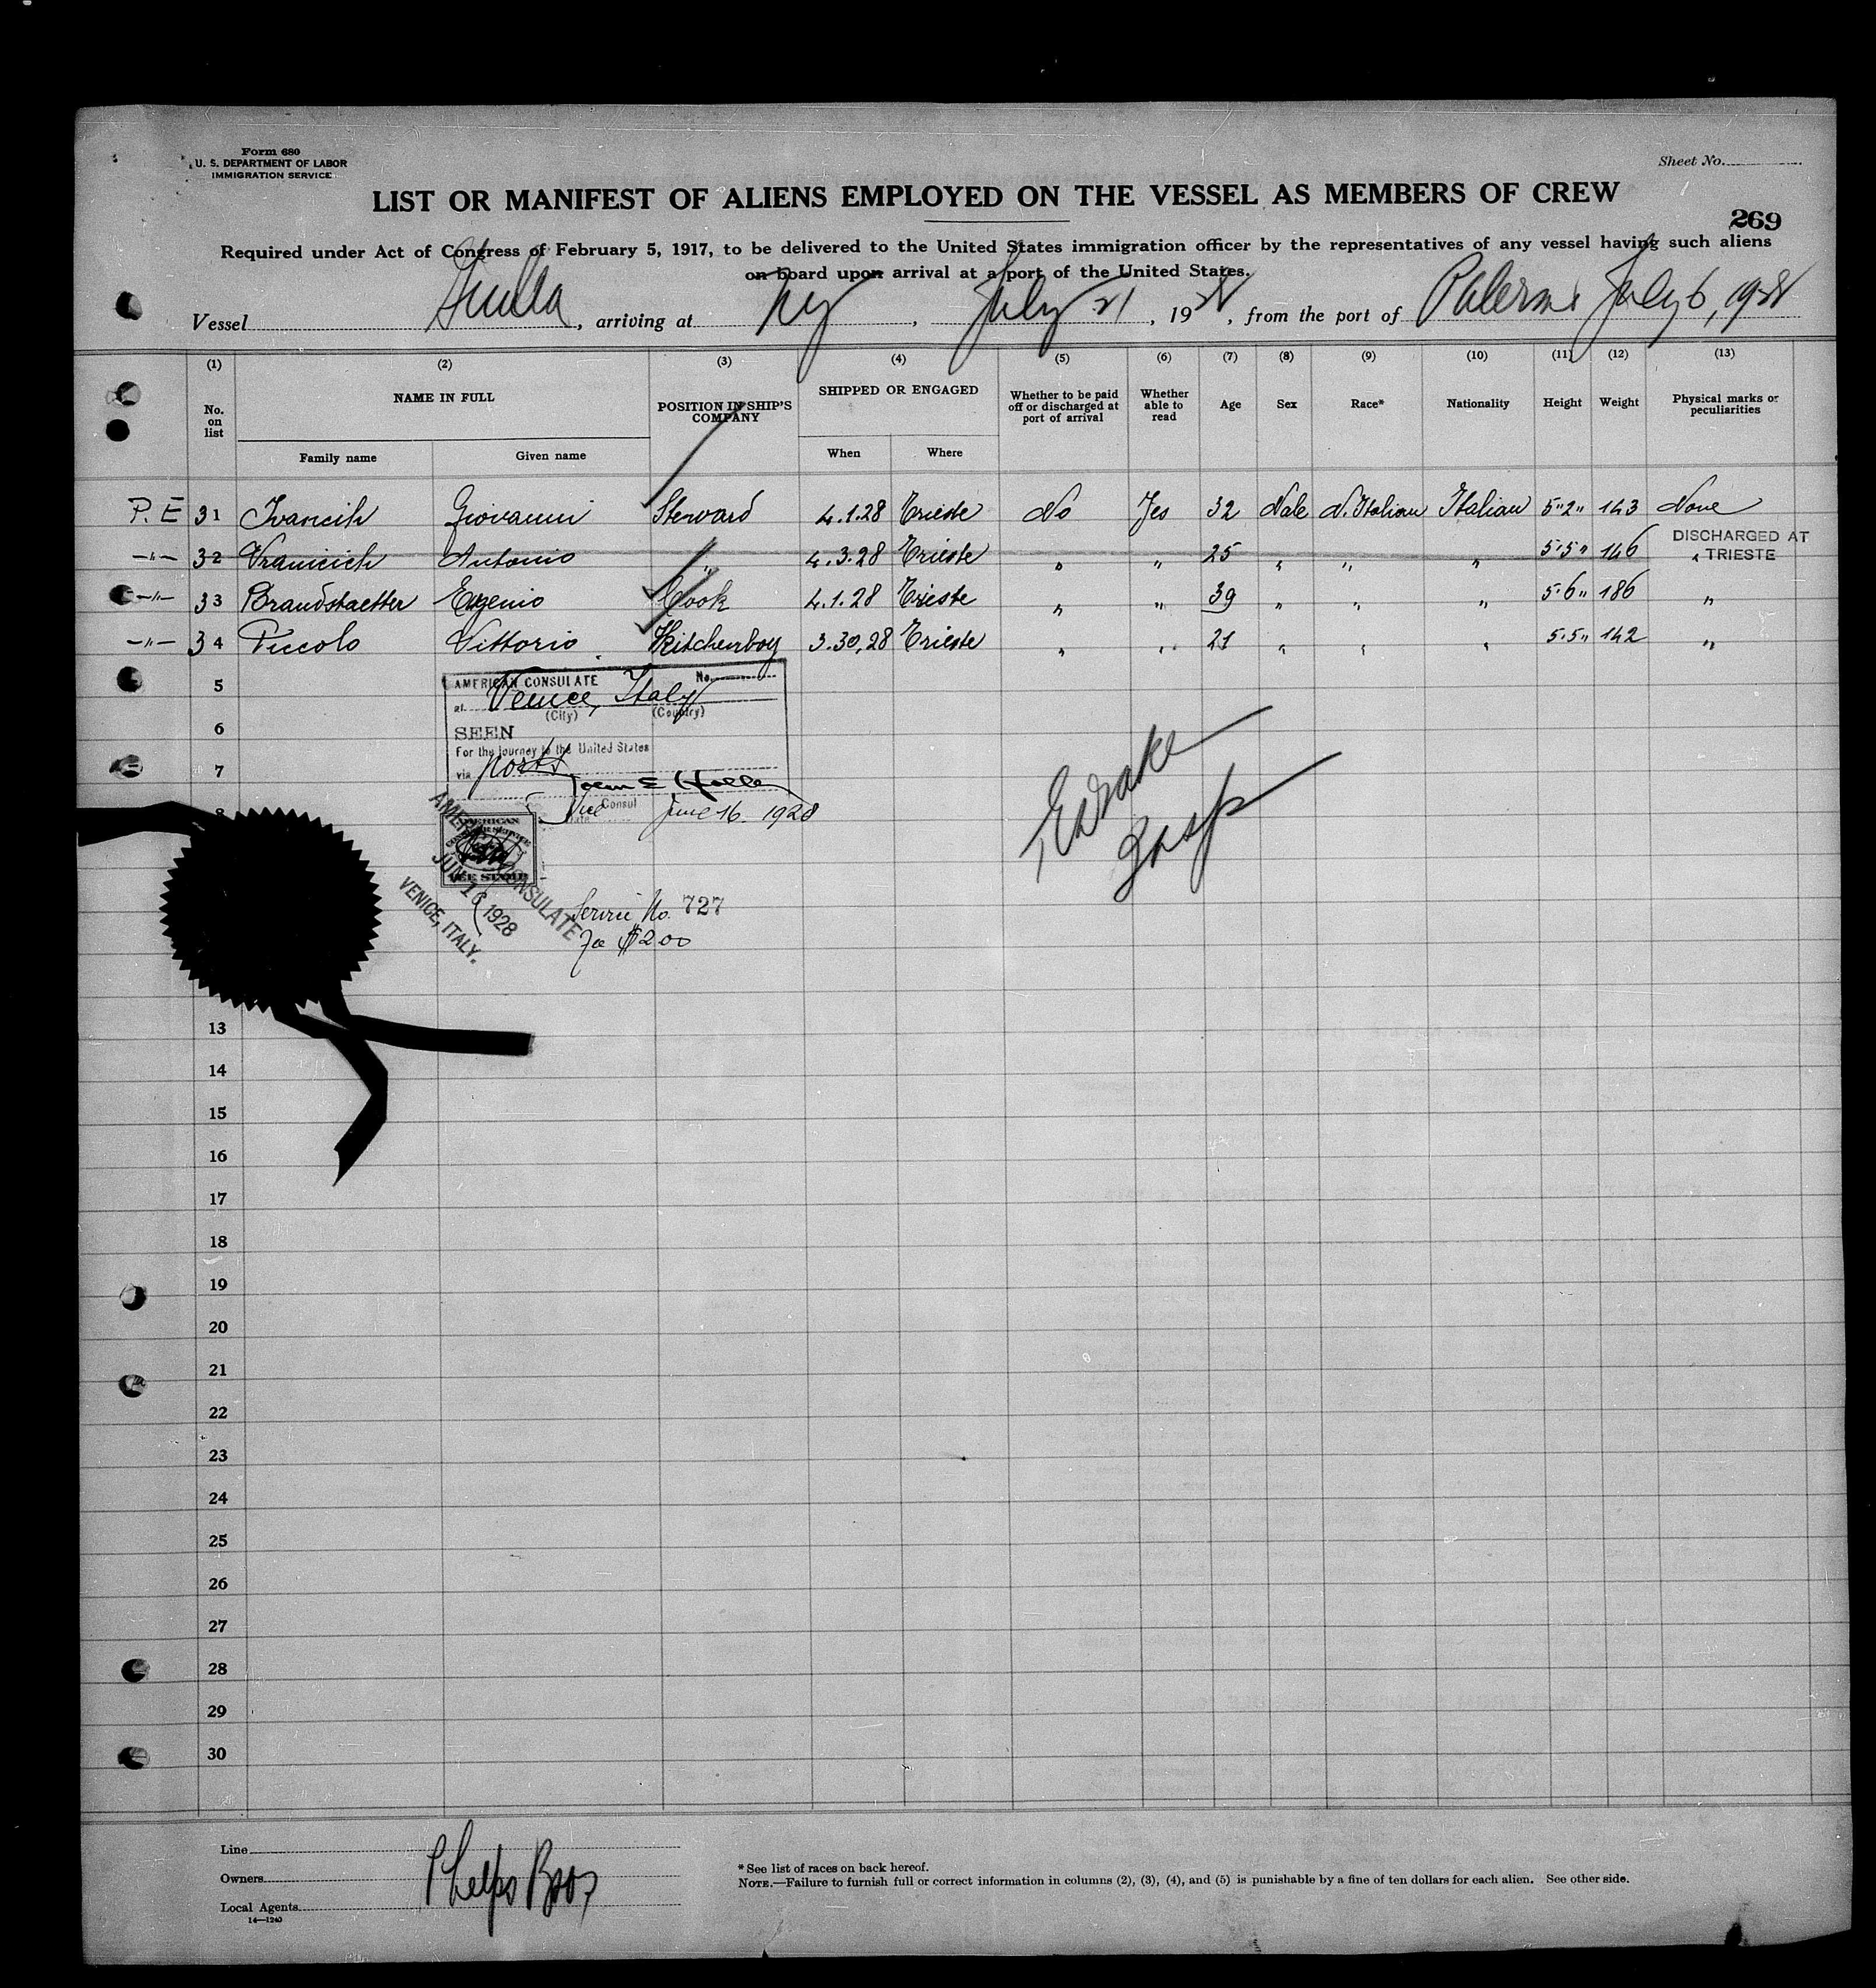 Form 680
U. S. DEPARTMENT OF LABOR
IMMIGRATION SERVICE
Sheet No.
LIST OR MANIFEST OF ALIENS EMPLOYED ON THE VESSEL AS MEMBERS OF CREW
269
Required under Act of Congress of February 5, 1917, to be delivered to the United States immigration officer by the representatives of any vessel having such aliens
on board upon arrival at a port of the United States.
Vessel, arriving at NY, July 21, 1928, from the port of Palermo July 6, 1928
(1) (2) (3) (4) (5) (6) (7) (8) (9) (10) (11) (12) (13)
No. on list
NAME IN FULL
Family name
Given name
POSITION IN SHIP'S COMPANY
SHIPPED OR ENGAGED
When
Where
Whether to be paid off or discharged at port of arrival
Whether able to read
Age
Sex
Race*
Nationality
Height
Weight
Physical marks or peculiarities
P.E 31 Ivancih Giovanni Steward 4.1.28 Trieste No Yes 32 Male N. Italian Italian 5"2" 143 None
-"- 32 Vranicich Antonio " 4.3.28 Trieste " " 25 " " " 5.5" 146 "
DISCHARGED AT
TRIESTE
-"- 33 Brandstaetter Eugenio Cook 4.1.28 Trieste " " 39 " " " 5.6" 186 "
-"- 34 Piccolo Vittorio Kitchenboy 3.30.28 Trieste " " 21 " " " 5.5" 142 "
5
6
7
8
AMERICAN CONSULATE No.
at Venice, Italy
(City) (Country)
SEEN
For the journey to the United States
via ports
Vice Consul June 16. 1928
AMERICAN CONSULATE
JUN 16 1928
VENICE, ITALY.
AMERICAN
FEE STAMP
Service No. 727
Fee $2.00
13
14
15
16
17
18
19
20
21
22
23
24
25
26
27
28
29
30
Line
Owners
Local Agents
14—1240
Phelps Bros
* See list of races on back hereof.
NOTE.—Failure to furnish full or correct information in columns (2), (3), (4), and (5) is punishable by a fine of ten dollars for each alien. See other side.